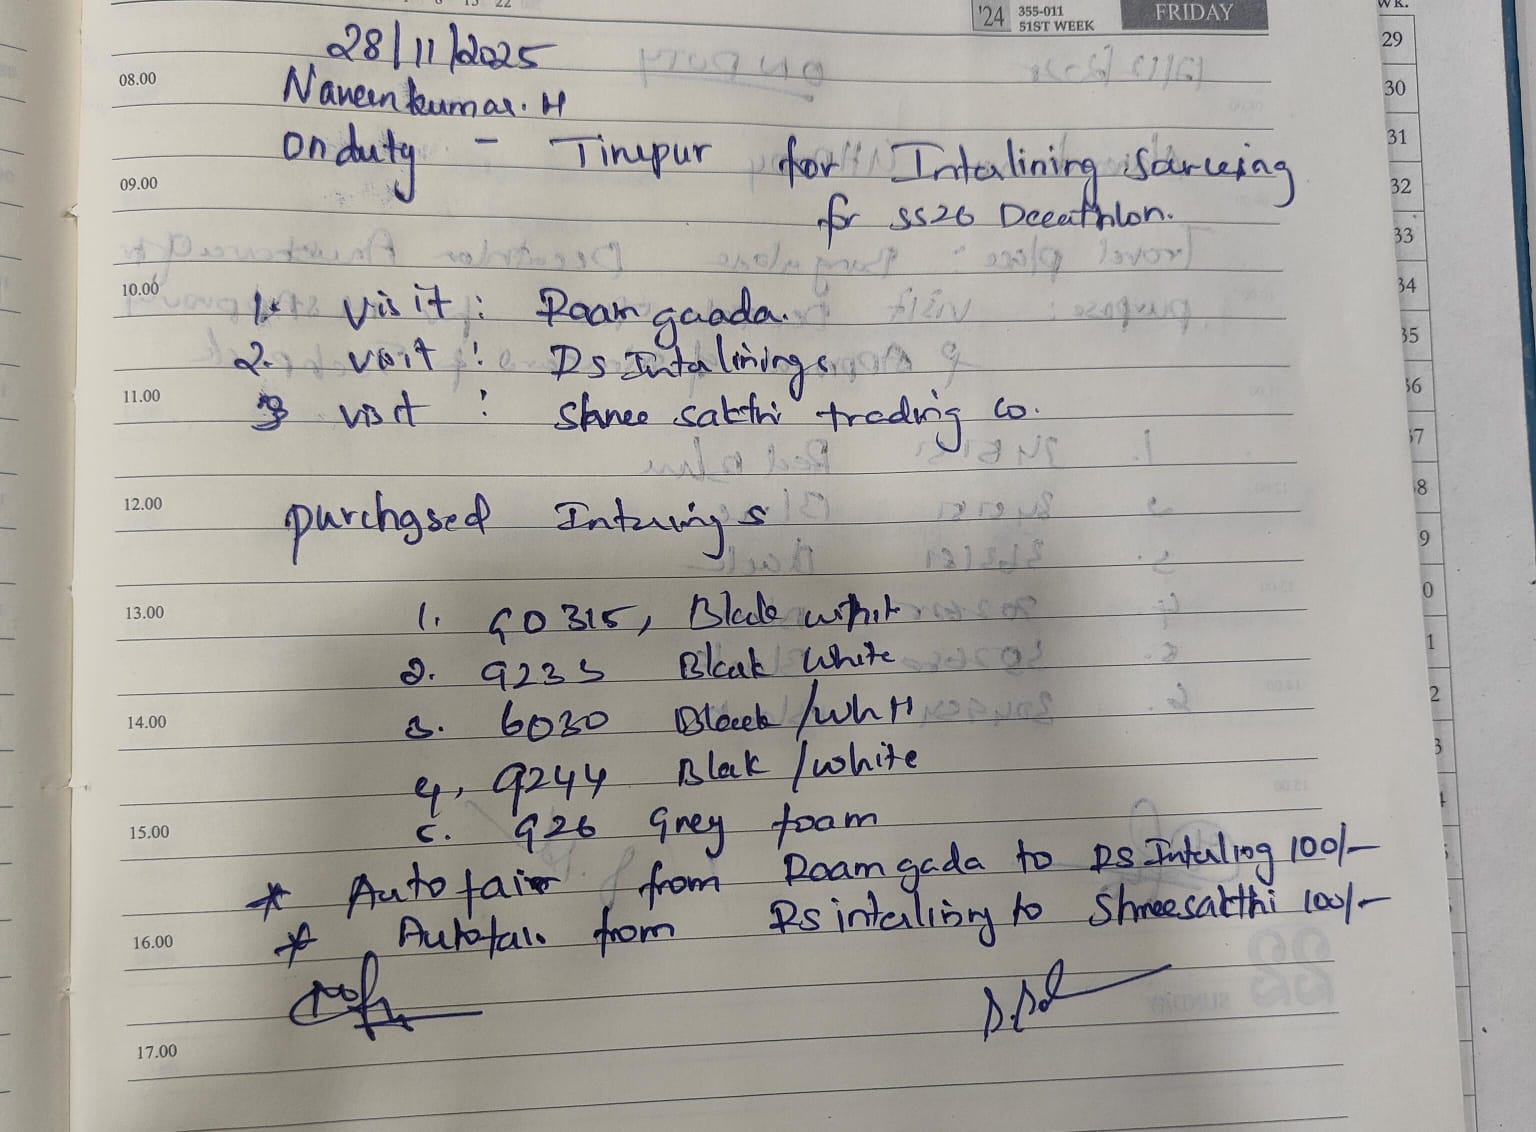 '24 355-011 51ST WEEK FRIDAY
WK.
28/11/2025
08.00
Naveen kumar. H
On duty - Tirupur for Interlining Sourcing
09.00
for SS26 Decathlon.
10.00
1. visit : Raam gaada.
2. visit : RS Interlinings
11.00
3 visit : Shree sakthi trading co.
12.00
purchased Interlinings
13.00
1. 90315, Black white
2. 9235 Black White
14.00
3. 6030 Black /white
4. 9244 Black /white
15.00
5. 926 Grey foam
* Auto fair from Raam gada to RS Interling 100/-
16.00
* Auto fair from RS interlining to Shreesakthi 100/-
17.00
29
30
31
32
33
34
35
36
37